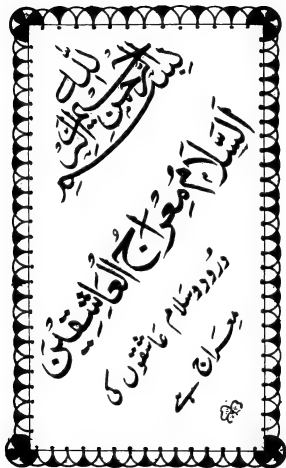 بسم الله الرحمن الرحيم
اَلسَّلَامُ مِعْرَاجُ الْعَاشِقِيْن
درود و سلام عاشقوں کی
معراج ہے